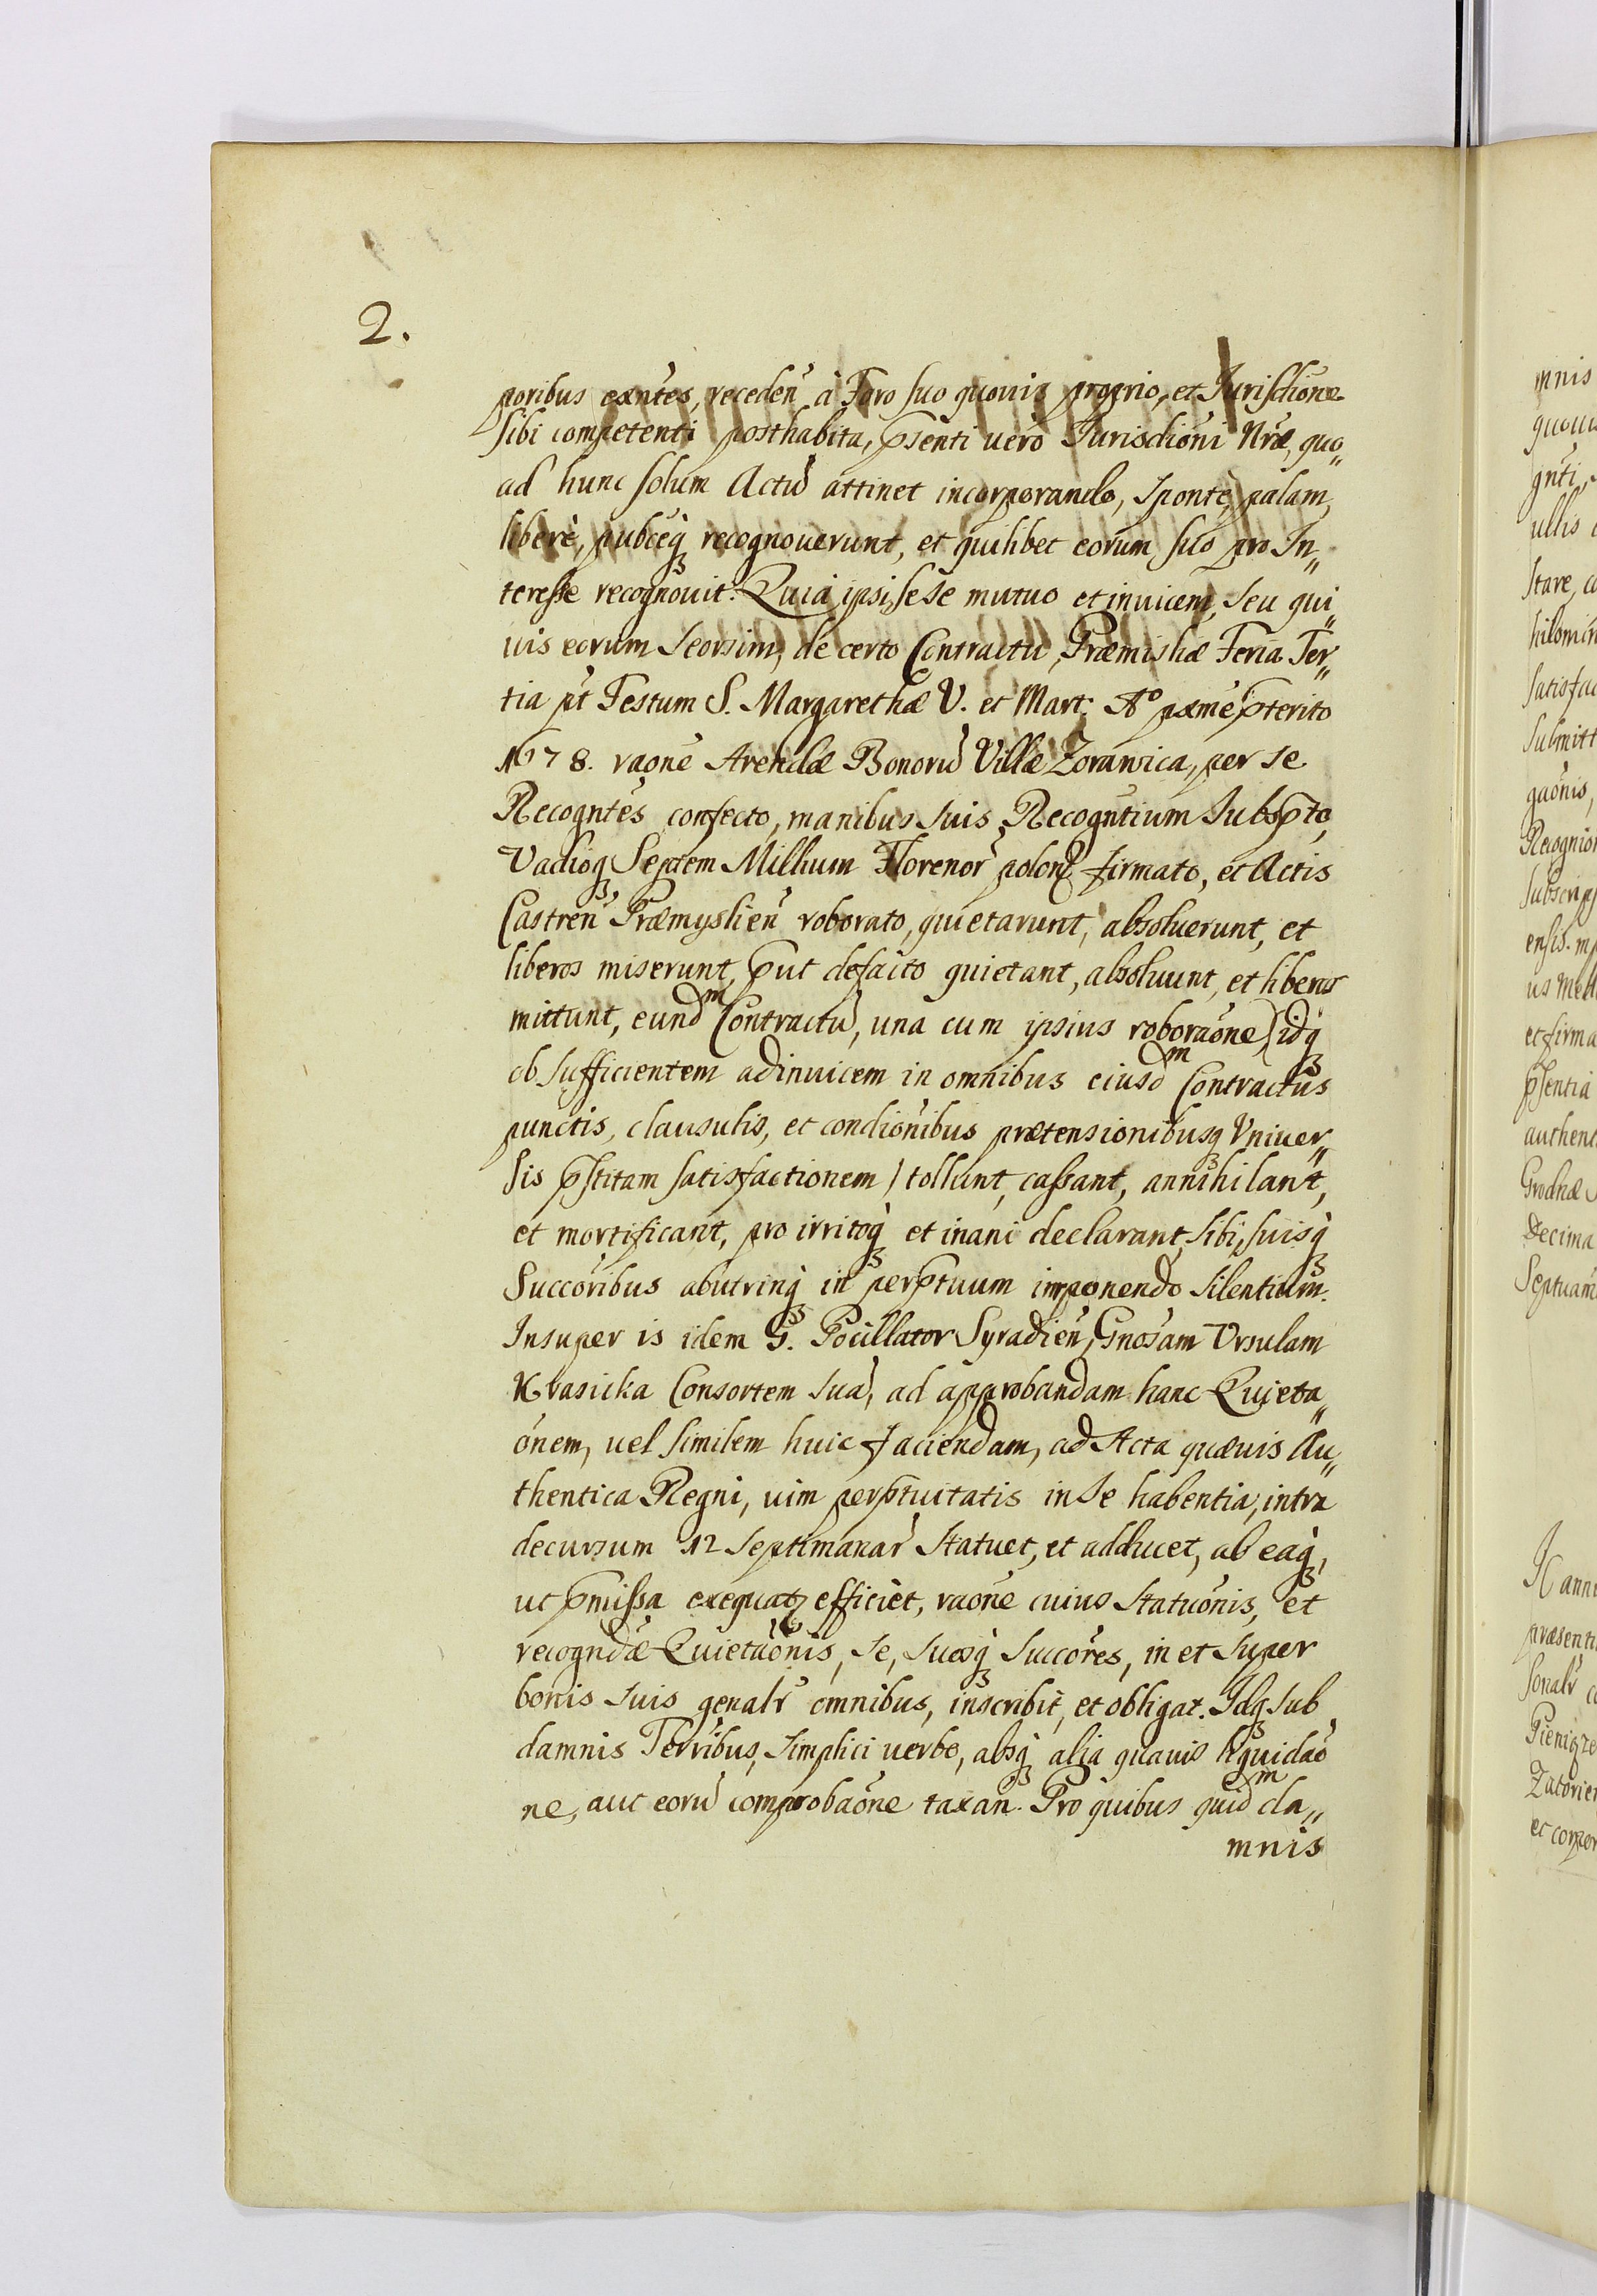 2.
poribus exñtes, recedeñ à Foro suo quouis proprio, et Jurisdicõne
sibi competenti posthabita, p̃senti uero Jurisdicõni Nr̃æ, quo„
ad hunc solum Actũ attinet incorporando, sponte, palam,
liberè, pubceq̃ recognouerunt, et quilibet eorum suo pro In„
teresse recognouit. Quia ipsi sese mutuo et inuicem, seu qui„
uis eorum seorsim, de certo Contractu, Præmisliæ Feria Ter„
tia p̃t Festum S. Margarethæ V. et Mart: Aº p̃xmẽ p̃terito
1678. raõne Arendæ Bonorũ Villæ Zorawica, per se
Recogñtes confecto, manibus suis Recogñtium Subsp̃to,
Vadioq̃ Septem Millium Florenor̃ polon̄ firmato, et Actis
Castreñ Præmyslieñ roborato, quietarunt, absoluerunt, et
liberos miserunt, p̃ut defacto quietant, absoluunt, et liberos
mittunt, eundᵐ Contractũ, una cum ipsius roboraõne (idq̃
ob sufficientem adinuicem in omnibus eiusdᵐ Contractus
punctis, clausulis, et condiõnibus prætensionibusq̃ Vniuer„
sis p̃stitam satisfactionem) tollunt, cassant, annihilant,
et mortificant, pro irritoq̃ et inani declarant, sibi, suisq̃
Succõribus abutrinq̃ in perp̃tuum imponendo silentium.
Insuper is idem G. Pocillator Syradieñ, Gnosam Vrsulam
Krasicka Consortem suã, ad approbandam hanc Quieta„
õnem, uel similem huic faciendam, ad Acta quæuis Au„
thentica Regni, uim perp̃tuitatis in se habentia, intra
decursum 12 Septimanar̃ statuet, et adducet, ab eaq̃,
ut p̃missa exequat efficiet, raõne cuius statuõnis, et
recogndæ Quietaõnis, se, suosq̃ Succõres, in et super
bonis suis genalr̃ omnibus, inscribit, et obligat. Idq̃ sub
damnis Terribus, simplici uerbo, absq̃ alia quauis liquidaõ
ne, aut eorũ comprobaõne taxañ. Pro quibus quidᵐ da„
mnis